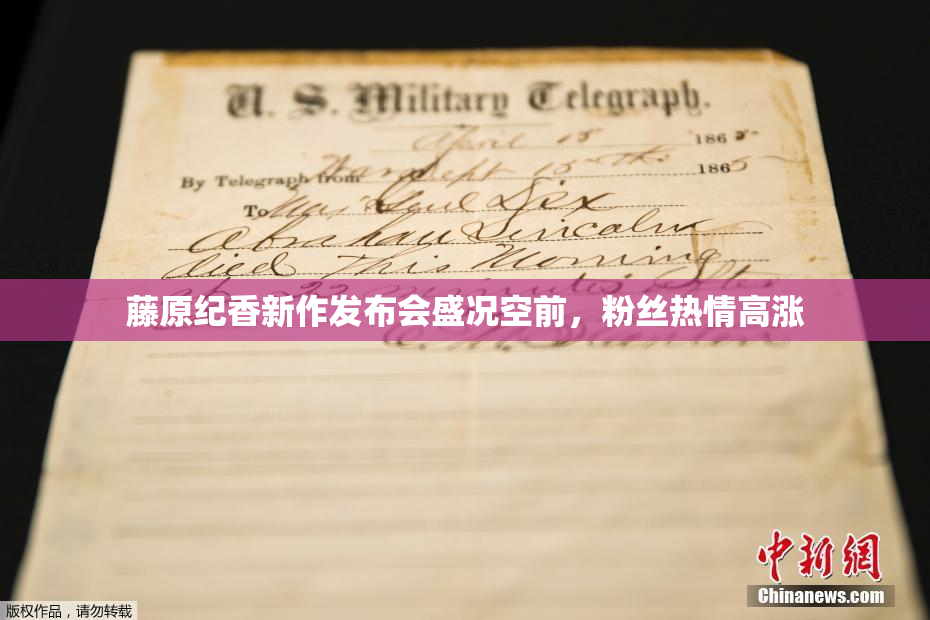 U. S. Military Telegraph.
April 15 1865
By Telegraph from Wash Dept 15th 1865
To Maj Genl Dix
Abraham Lincoln
died This Morning
22 minutes after
E. M. Stanton
藤原纪香新作发布会盛况空前，粉丝热情高涨
中新网
Chinanews.com
版权作品，请勿转载